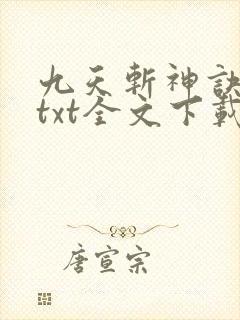 九天斩神訣
txt全文下載
唐宣宗